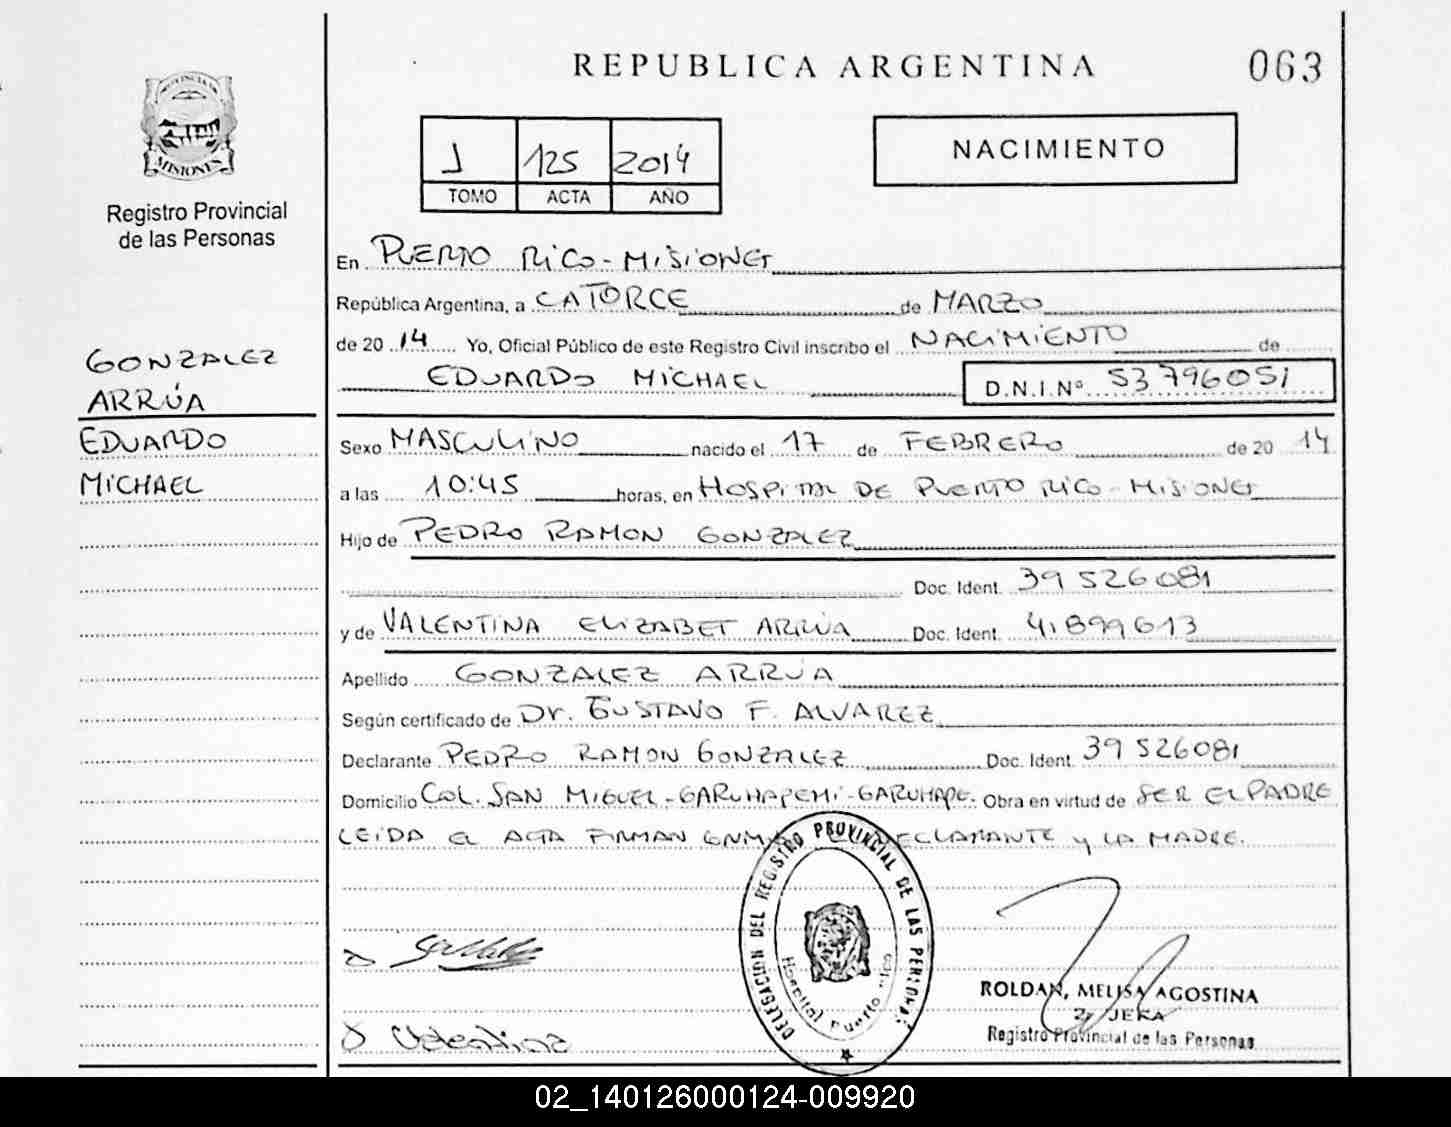 REPUBLICA ARGENTINA
063
PROVINCIA DE
MISIONES
Registro Provincial
de las Personas
1 125 2014
TOMO ACTA AÑO
NACIMIENTO
En PUERTO RICO - MISIONES
República Argentina, a CATORCE de MARZO
de 20 14 Yo, Oficial Público de este Registro Civil inscribo el NACIMIENTO de
EDUARDO MICHAEL D.N.I.Nº 53796051
GONZALEZ
ARRÚA
EDUARDO
MICHAEL
Sexo MASCULINO nacido el 17 de FEBRERO de 20 14
a las 10:45 horas, en HOSPITAL DE PUERTO RICO - MISIONES
Hijo de PEDRO RAMON GONZALEZ
Doc. Ident. 39 526081
y de VALENTINA ELIZABET ARRÚA Doc. Ident. 41899613
Apellido GONZALEZ ARRÚA
Según certificado de Dr. GUSTAVO F. ALVAREZ
Declarante PEDRO RAMON GONZALEZ Doc. Ident. 39 526081
Domicilio COL. SAN MIGUEL - GARUHAPEMI - GARUHAPE. Obra en virtud de SER EL PADRE
LEIDA EL ACTA FIRMAN DECLARANTE y LA MADRE.
DELEGACION DEL REGISTRO PROVINCIAL DE LAS PERSONAS
Hospital Puerto Rico
Valentina
ROLDAN, MELISA AGOSTINA
JEFA
Registro Provincial de las Personas
02_140126000124-009920